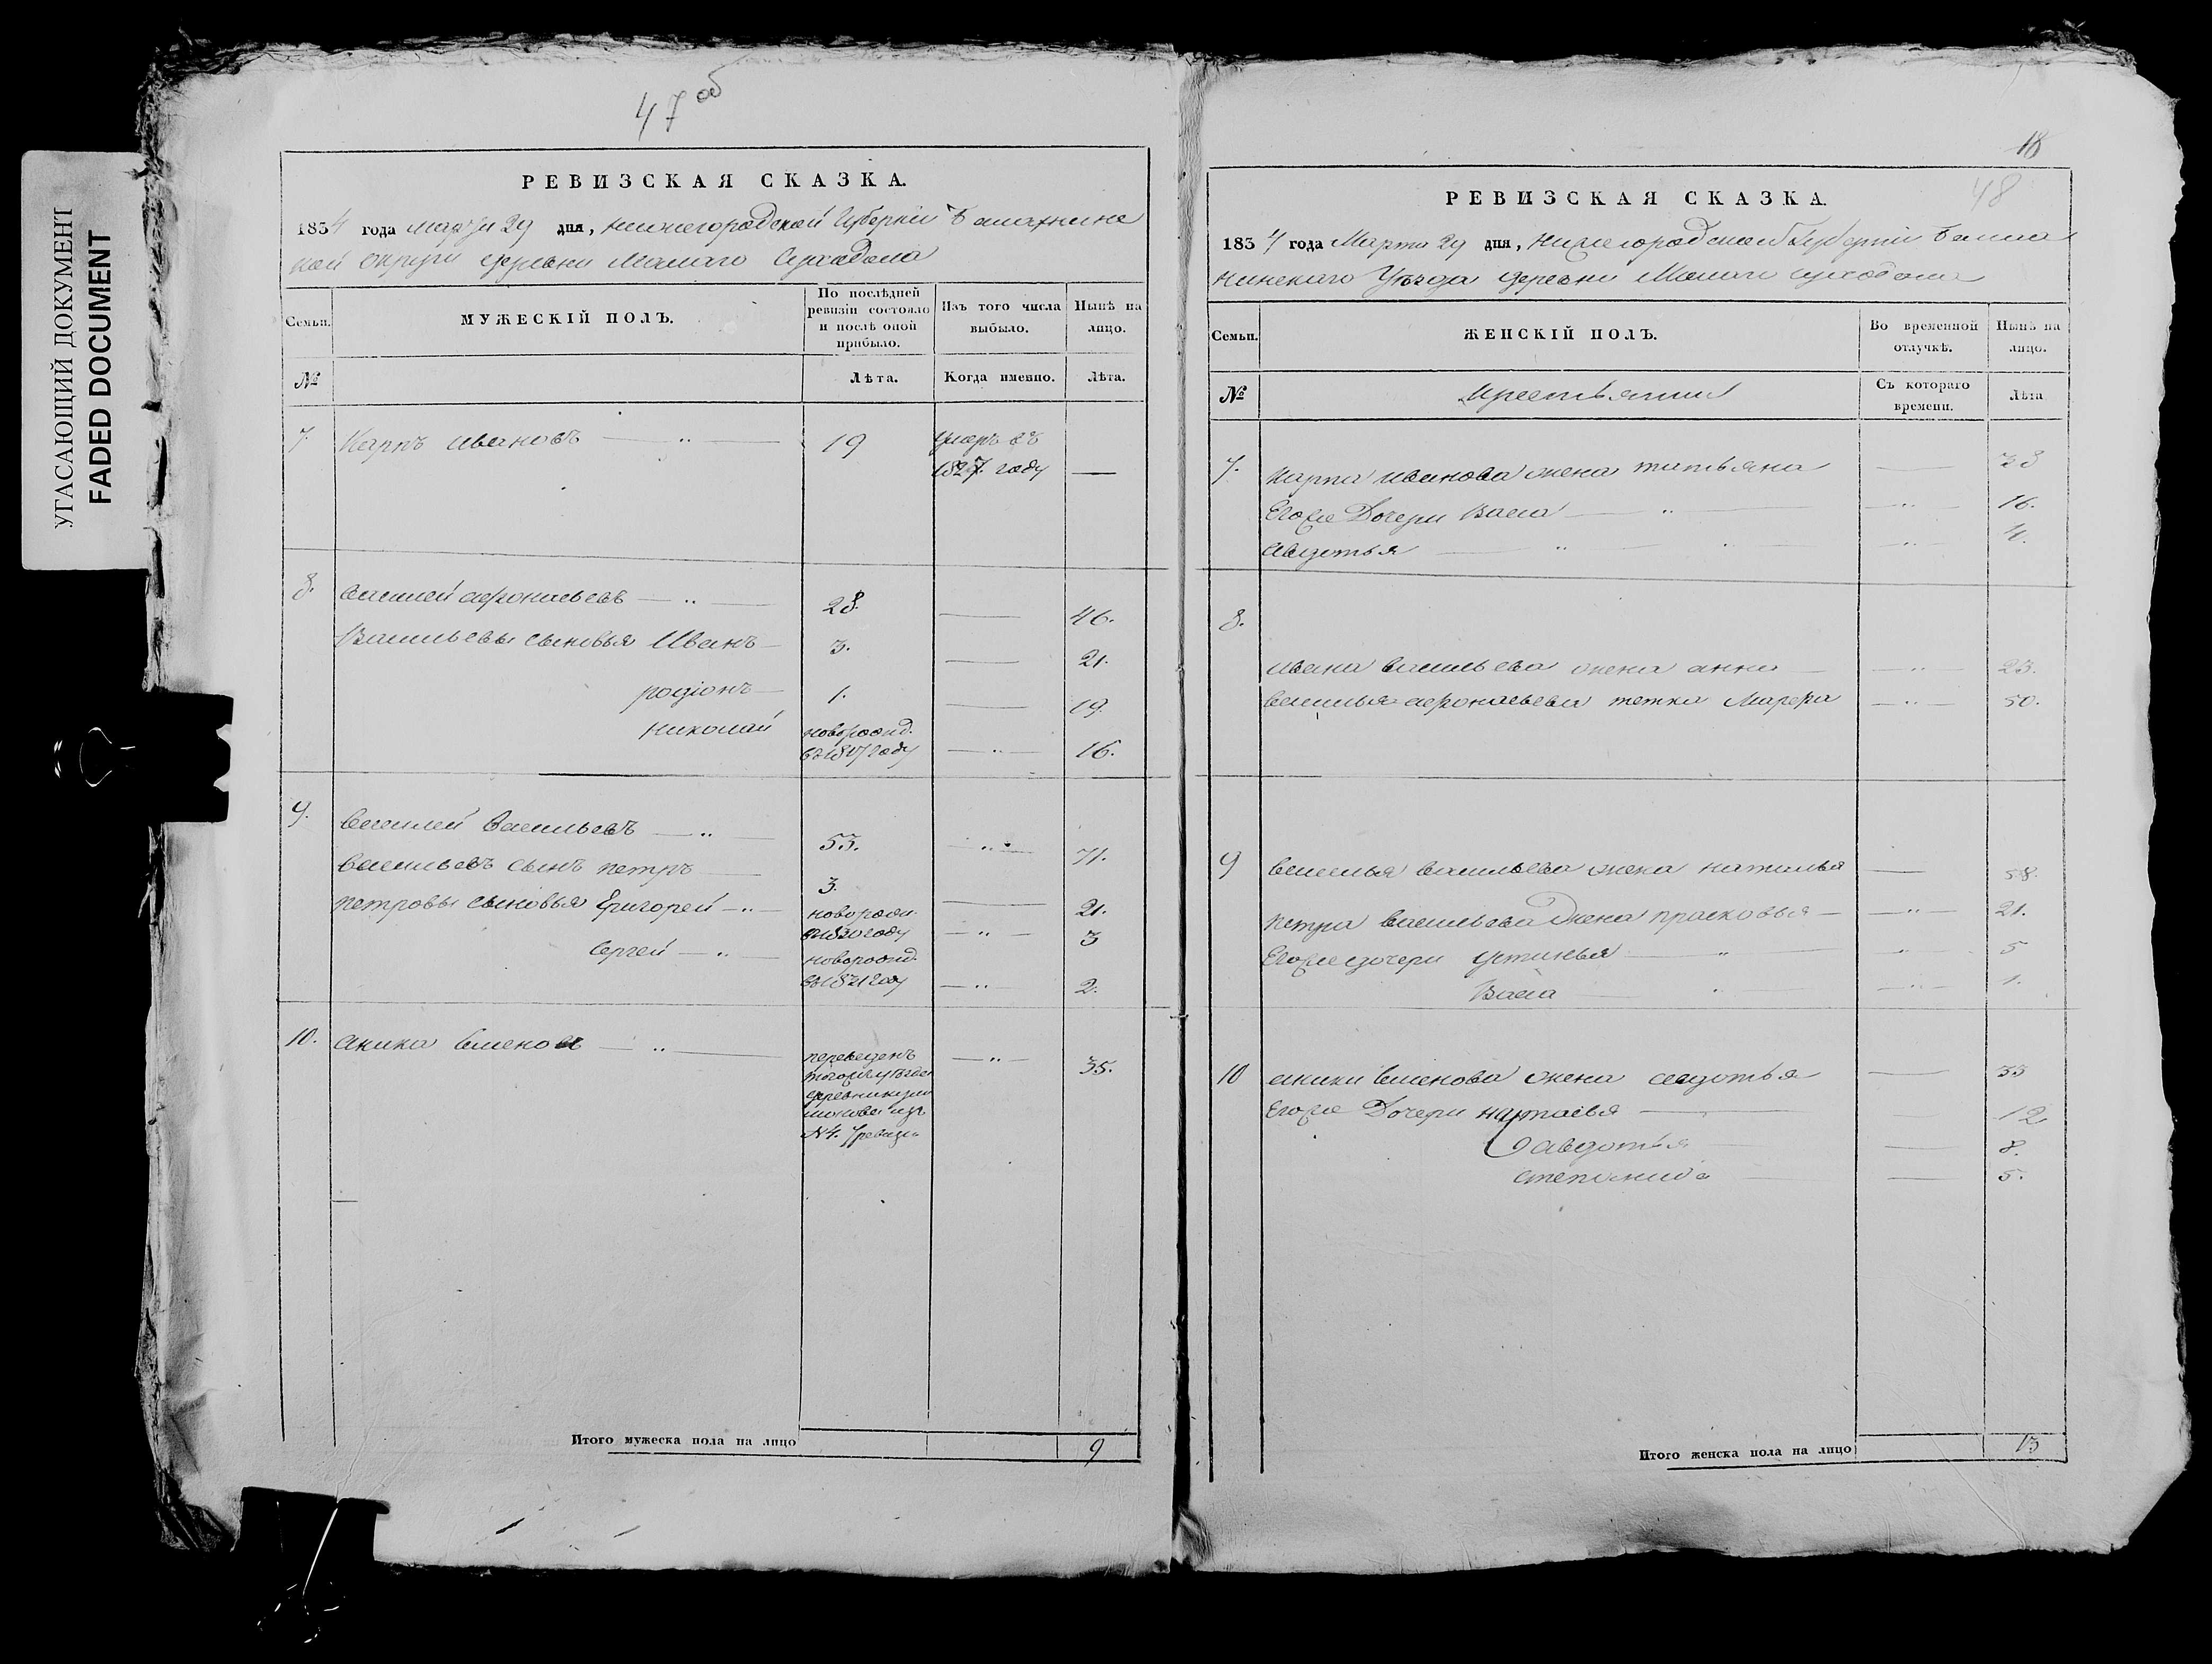 УГАСАЮЩИЙ ДОКУМЕНТ
FADED DOCUMENT
47 об
РЕВИЗСКАЯ СКАЗКА.
1834 года марта 29 дня, нижегородской Губернии Балахнинс
кой округи деревни Малаго Суходола
Семьи.
МУЖЕСКІЙ ПОЛЪ.
По послѣдней ревизіи состояло и послѣ оной прибыло.
Изъ того числа выбыло.
Нынѣ на лицо.
№
Лѣта.
Когда именно.
Лѣта.
7. Карпъ ивановъ — 19 умеръ въ
1827 году —
8. василей афонасьевъ — 28. — 46.
Васильевы сыновья Иванъ — 3. — 21.
родіонъ — 1. — 19.
николай новорожд. въ 1817 году — 16.
9. василей васильевъ — 53. — 71.
васильевъ сынъ петръ — 3. — 21.
петровы сыновья Григорей — новорожд. въ 1830 году — 3
сергей — новорожд. въ 1831 году — 2.
10. аника семеновъ — переведенъ
тогожъ уѣзда
деревни
изъ
№ 4. ревизіи — 35.
Итого мужеска пола на лицо 9
18
48
РЕВИЗСКАЯ СКАЗКА.
1834 года Марта 29 дня, нижегородской Губерніи Балах
нинскаго Уѣзда деревни Малаго суходола
Семьи.
ЖЕНСКІЙ ПОЛЪ.
Во временной отлучкѣ.
Нынѣ на лицо.
№
крестьянки
Съ котораго времени.
Лѣта
7. карпа иванова жена татьяна — 38
Егоже Дочери Васа — 16.
авдотья — 4.
8.
ивана васильева жена анна — 23.
василья афонасьева тетка Марфа — 50.
9 василья васильева жена наталья — 58.
петра васильева жена прасковья — 21.
Егоже дочери устинья — 5
Васа — 1.
10 аники семенова жена авдотья — 33
Егоже Дочери настасья — 12
авдотья — 8.
степанида — 5.
Итого женска пола на лицо 13